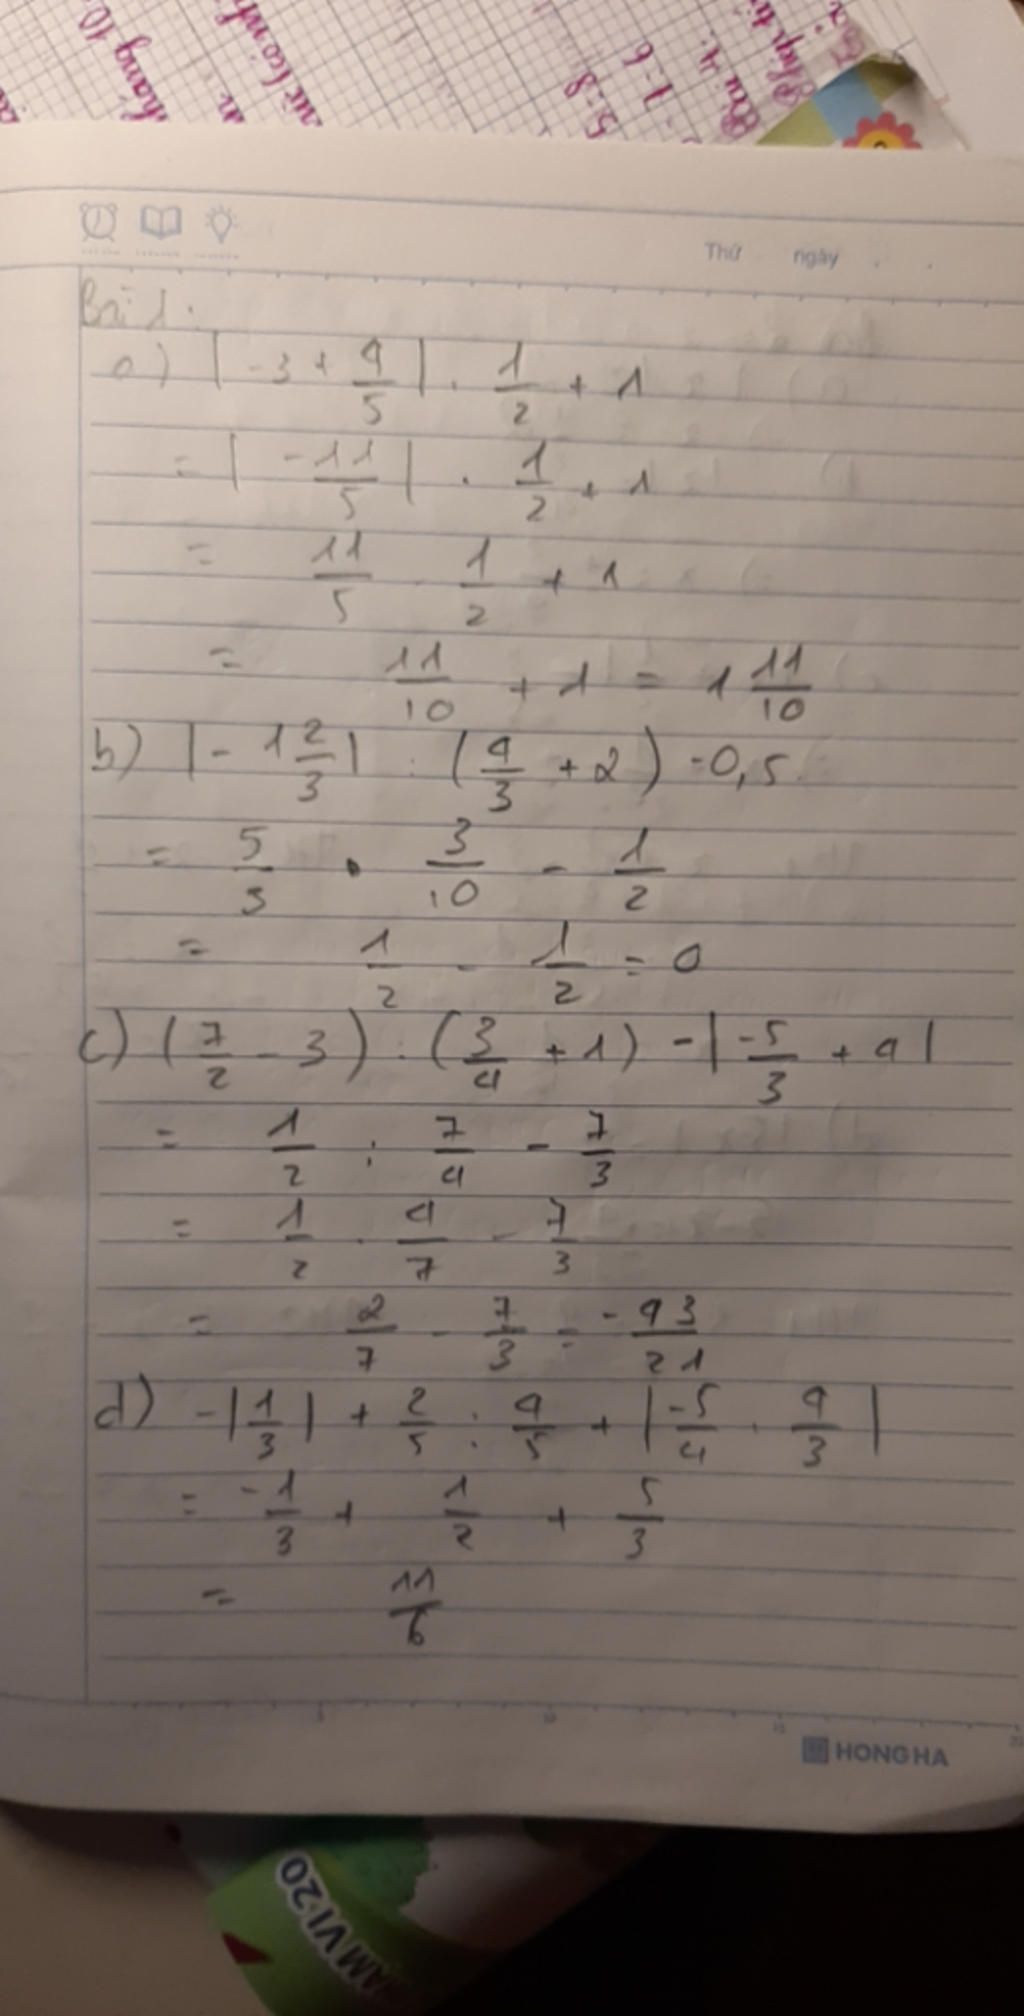 hàng 10
5:8
7:6
Thứ ngày
Bài 1:
a) |-3 + 4/5| . 1/2 + 1
= |-11/5| . 1/2 + 1
= 11/5 . 1/2 + 1
= 11/10 + 1 = 1 11/10
b) |-1 2/3| : (4/3 + 2) - 0,5
= 5/3 . 3/10 - 1/2
= 1/2 - 1/2 = 0
c) (7/2 - 3) : (3/4 + 1) - |-5/3 + 4|
= 1/2 : 7/4 - 7/3
= 1/2 . 4/7 - 7/3
= 2/7 - 7/3 = -43/21
d) -|1/3| + 2/5 : 4/5 + |-5/4 . 4/3|
= -1/3 + 1/2 + 5/3
= 11/6
5 10 15 20
HONG HA
AM VI 20